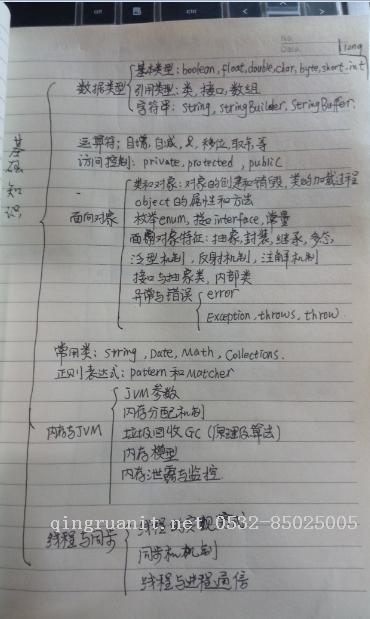 No.
Date.
Liang
基础知识
基本类型: boolean, float, double, char, byte, short, int
数据类型 引用类型: 类, 接口, 数组
字符串: String, StringBuilder, StringBuffer.
运算符; 自增, 自减, &, 移位, 取余等
访问控制: private, protected, public
类和对象: 对象的创建和销毁, 类的加载过程
object的属性和方法
面向对象 枚举enum, 接口interface, 常量
面向对象特征: 抽象, 封装, 继承, 多态,
泛型机制, 反射机制, 注解机制
接口与抽象类, 内部类
异常与错误 error
Exception, throws, throw.
常用类: String, Date, Math, Collections.
正则表达式: pattern 和 Matcher
JVM 参数
内存分配机制
内存与JVM 垃圾回收GC (原理及算法)
内存模型
内存泄露与监控
qingruanit.net 0532-85025005
线程与同步 线程的实现
同步和机制
线程与进程通信